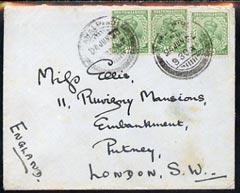 Miss Ellis,
11, Ruvigny Mansions,
Embankment,
Putney,
LONDON, S.W.
ENGLAND.